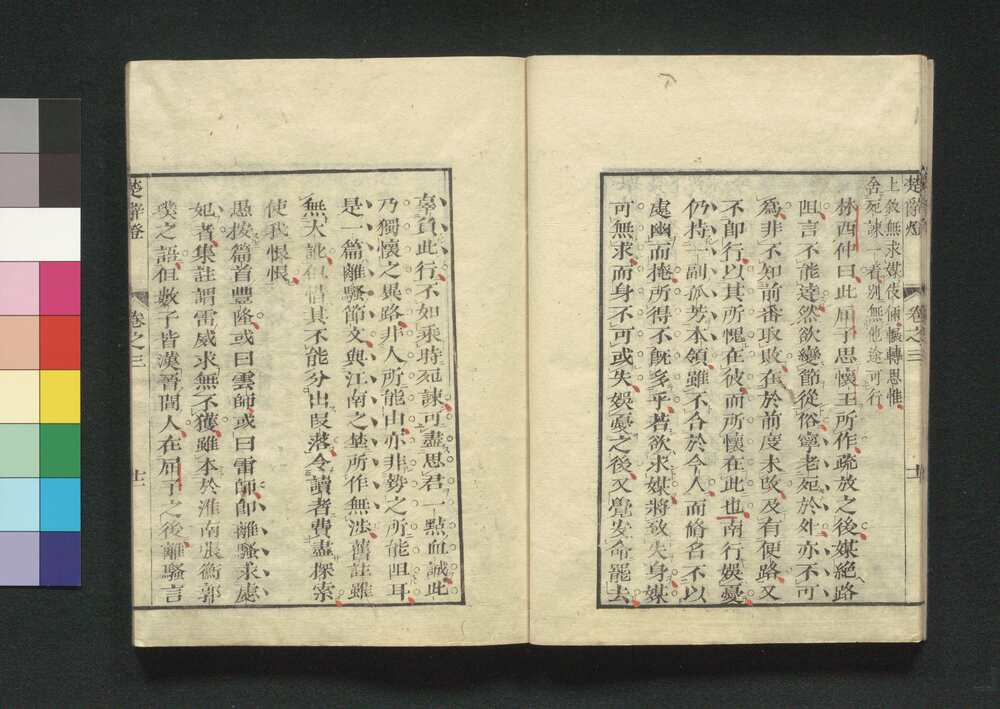 楚辭燈 卷之三 十一
上敘無求媒伎倆輾轉思惟
舍死諫一着別無他途可行
林西仲曰此屈子思懷王所作疏放之後媒絕路
阻言不能達然欲變節從俗寧老死於外亦不可
為非不知前番取敗在於前度未改及有便路又
不卽行以其所愧在彼而所懷在此也南行娛憂
仍持一副孤芳本領雖不合於今人而脩名不以
處幽而掩所得不旣多乎若欲求媒將致失身媒
可無求而身不可或失娛憂之後又覺安命罷去
辜負此行不如乘時死諫可盡思君一點血誠此
乃獨懷之異路非人所能由亦非勢之所能阻耳
是一篇離騷節文與江南之埜所作無涉舊註雖
無大訛但惜其不能分出段落令讀者費盡探索
使我恨恨
愚按篇首豐隆或曰雲師或曰雷師卽離騷求宓
妃者集註謂雷威求無不獲雖本於淮南張衡郭
璞之語但數子皆漢晉間人在屈子之後離騷言
楚辭燈 卷之三 十二